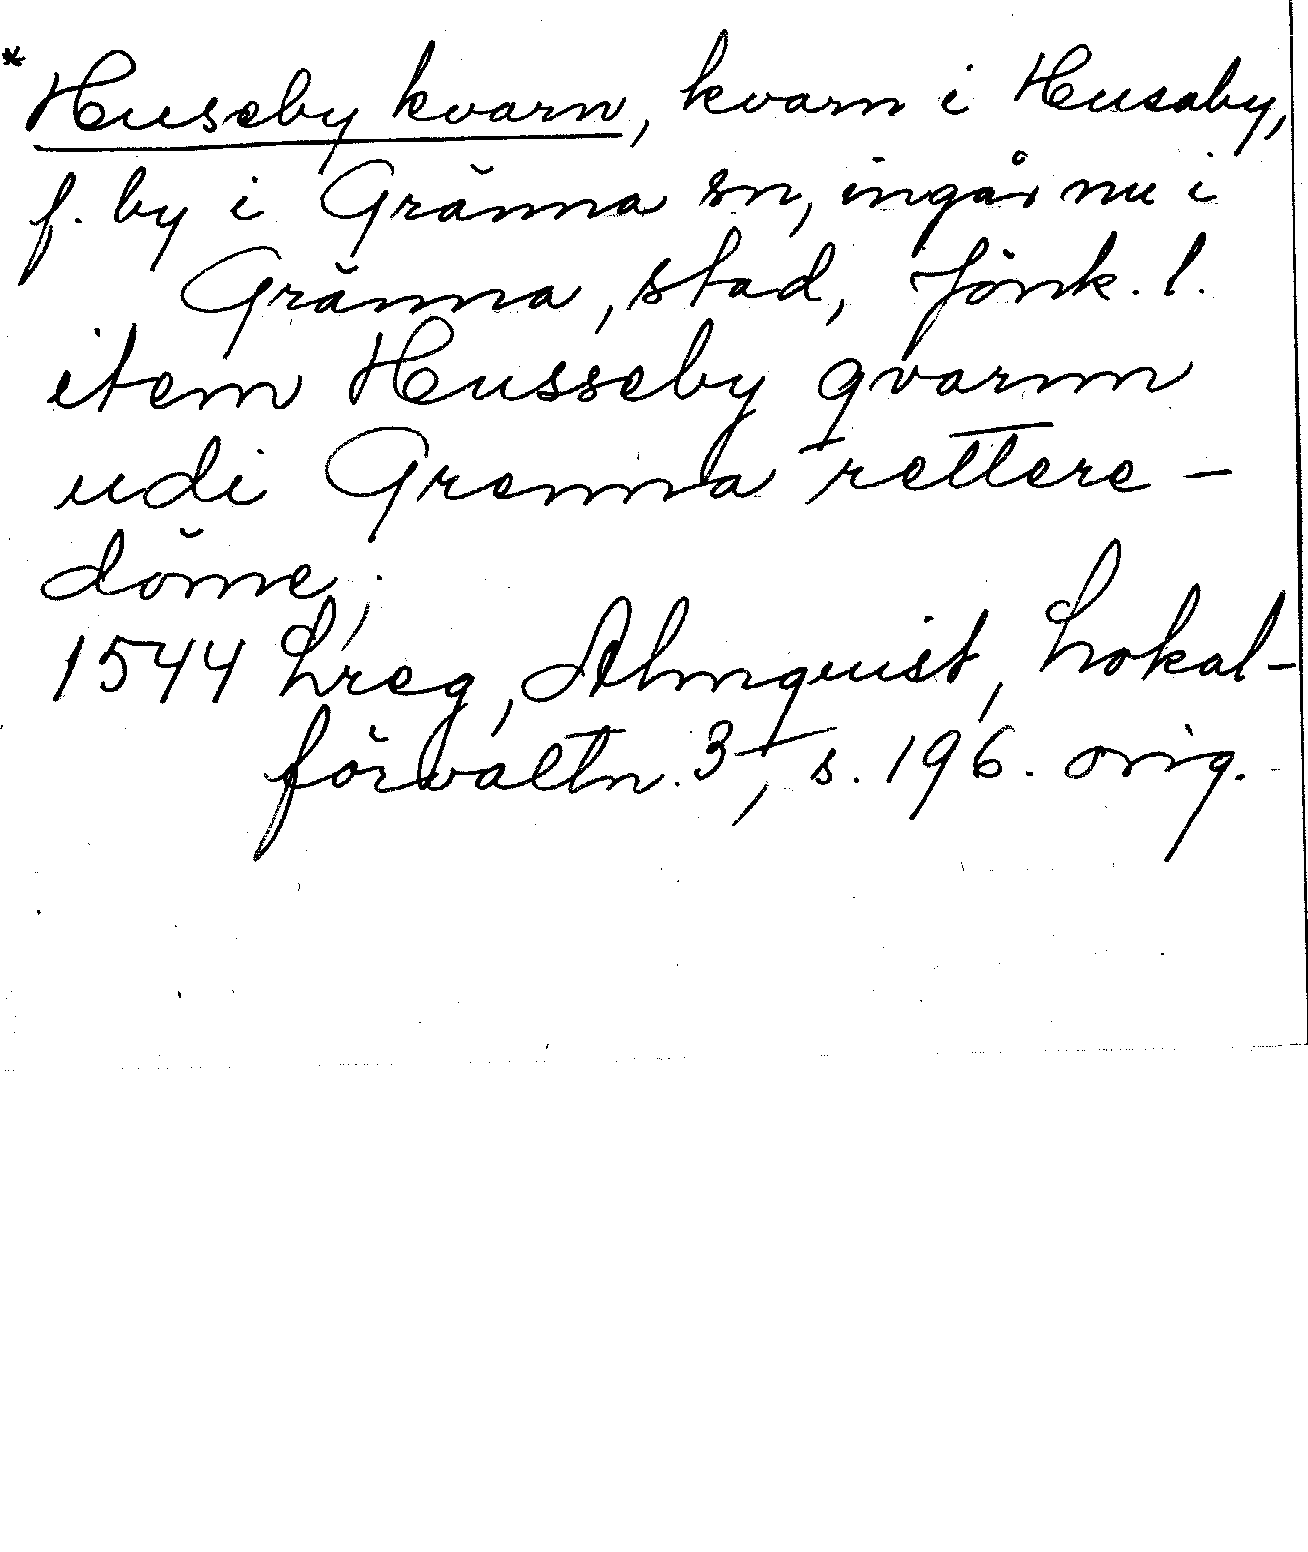 * Huseby kvarn, kvarn i Husaby,
f. by i Gränna sn, ingår nu i
Gränna, stad, Jönk. l.
item Husseby qvarnn
udi Grenna rettere-
döme;
1544 Lreg, Almquist, Lokal-
förvaltn. 3, s. 196. orig.